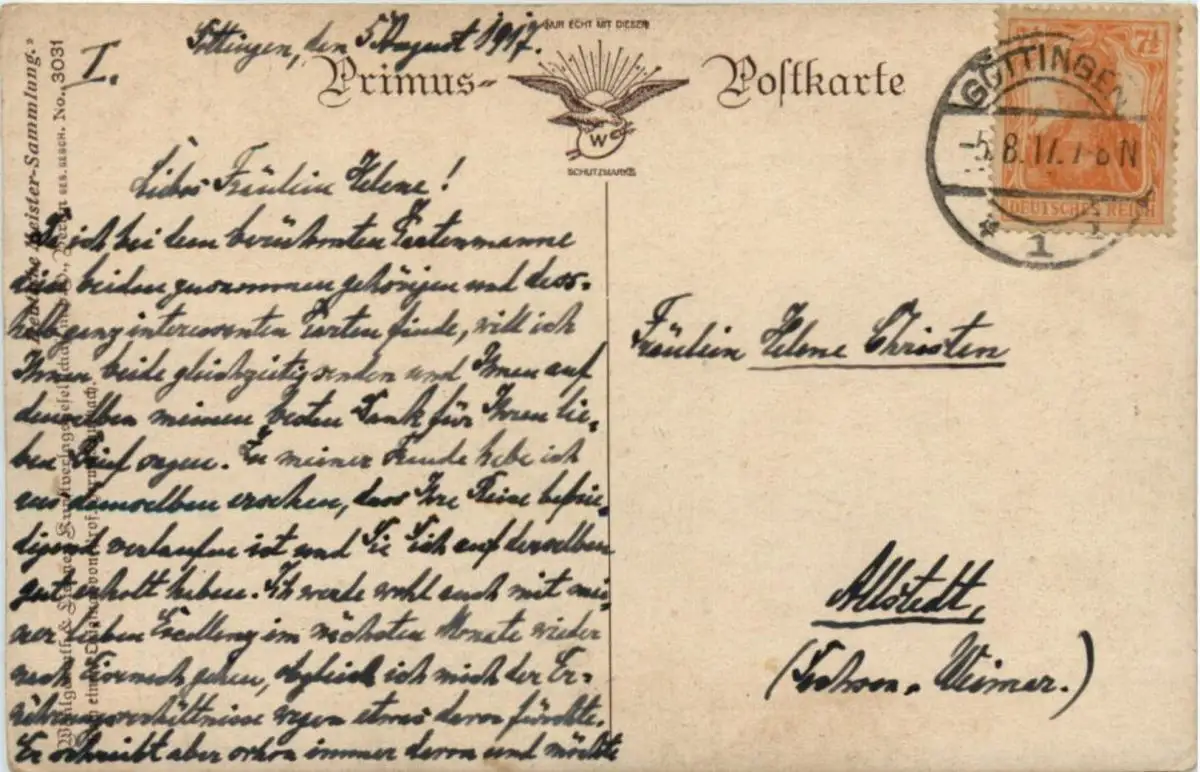 I.
Göttingen, den 5 August 1917.
NUR ECHT MIT DIESER
Primus-
W
SCHUTZMARKE
Postkarte
Liebes Fräulein Helene!
Da ich bei dem berühmten Kartenmanne
diese beiden zusammen gehörigen und dess-
halb ganz interessanten Karten finde, will ich
Ihnen beide gleichzeitig senden und Ihnen auf
denselben meinen besten Dank für Ihren lie-
ben Brief sagen. Zu meiner Freude habe ich
aus demselben ersehen, dass Ihre Reise befrie-
digend verlaufen ist und Sie Sich auf derselben
gut erholt haben. Ich werde wohl auch mit mei-
ner lieben im nächsten Monate wieder
nach Eisenach gehen, obgleich ich mich der Er-
nährungsverhältnisse wegen etwas davor fürchte.
Er schreibt aber schon immer davon und möchte
GÖTTINGEN
-5.8.17.7-8N
* 1
7½
DEUTSCHES REICH
Fräulein Helene Christen
Allstedt,
(Sachsen-Weimar.)
Meister-Sammlung."
GES. GESCH. No. 3031